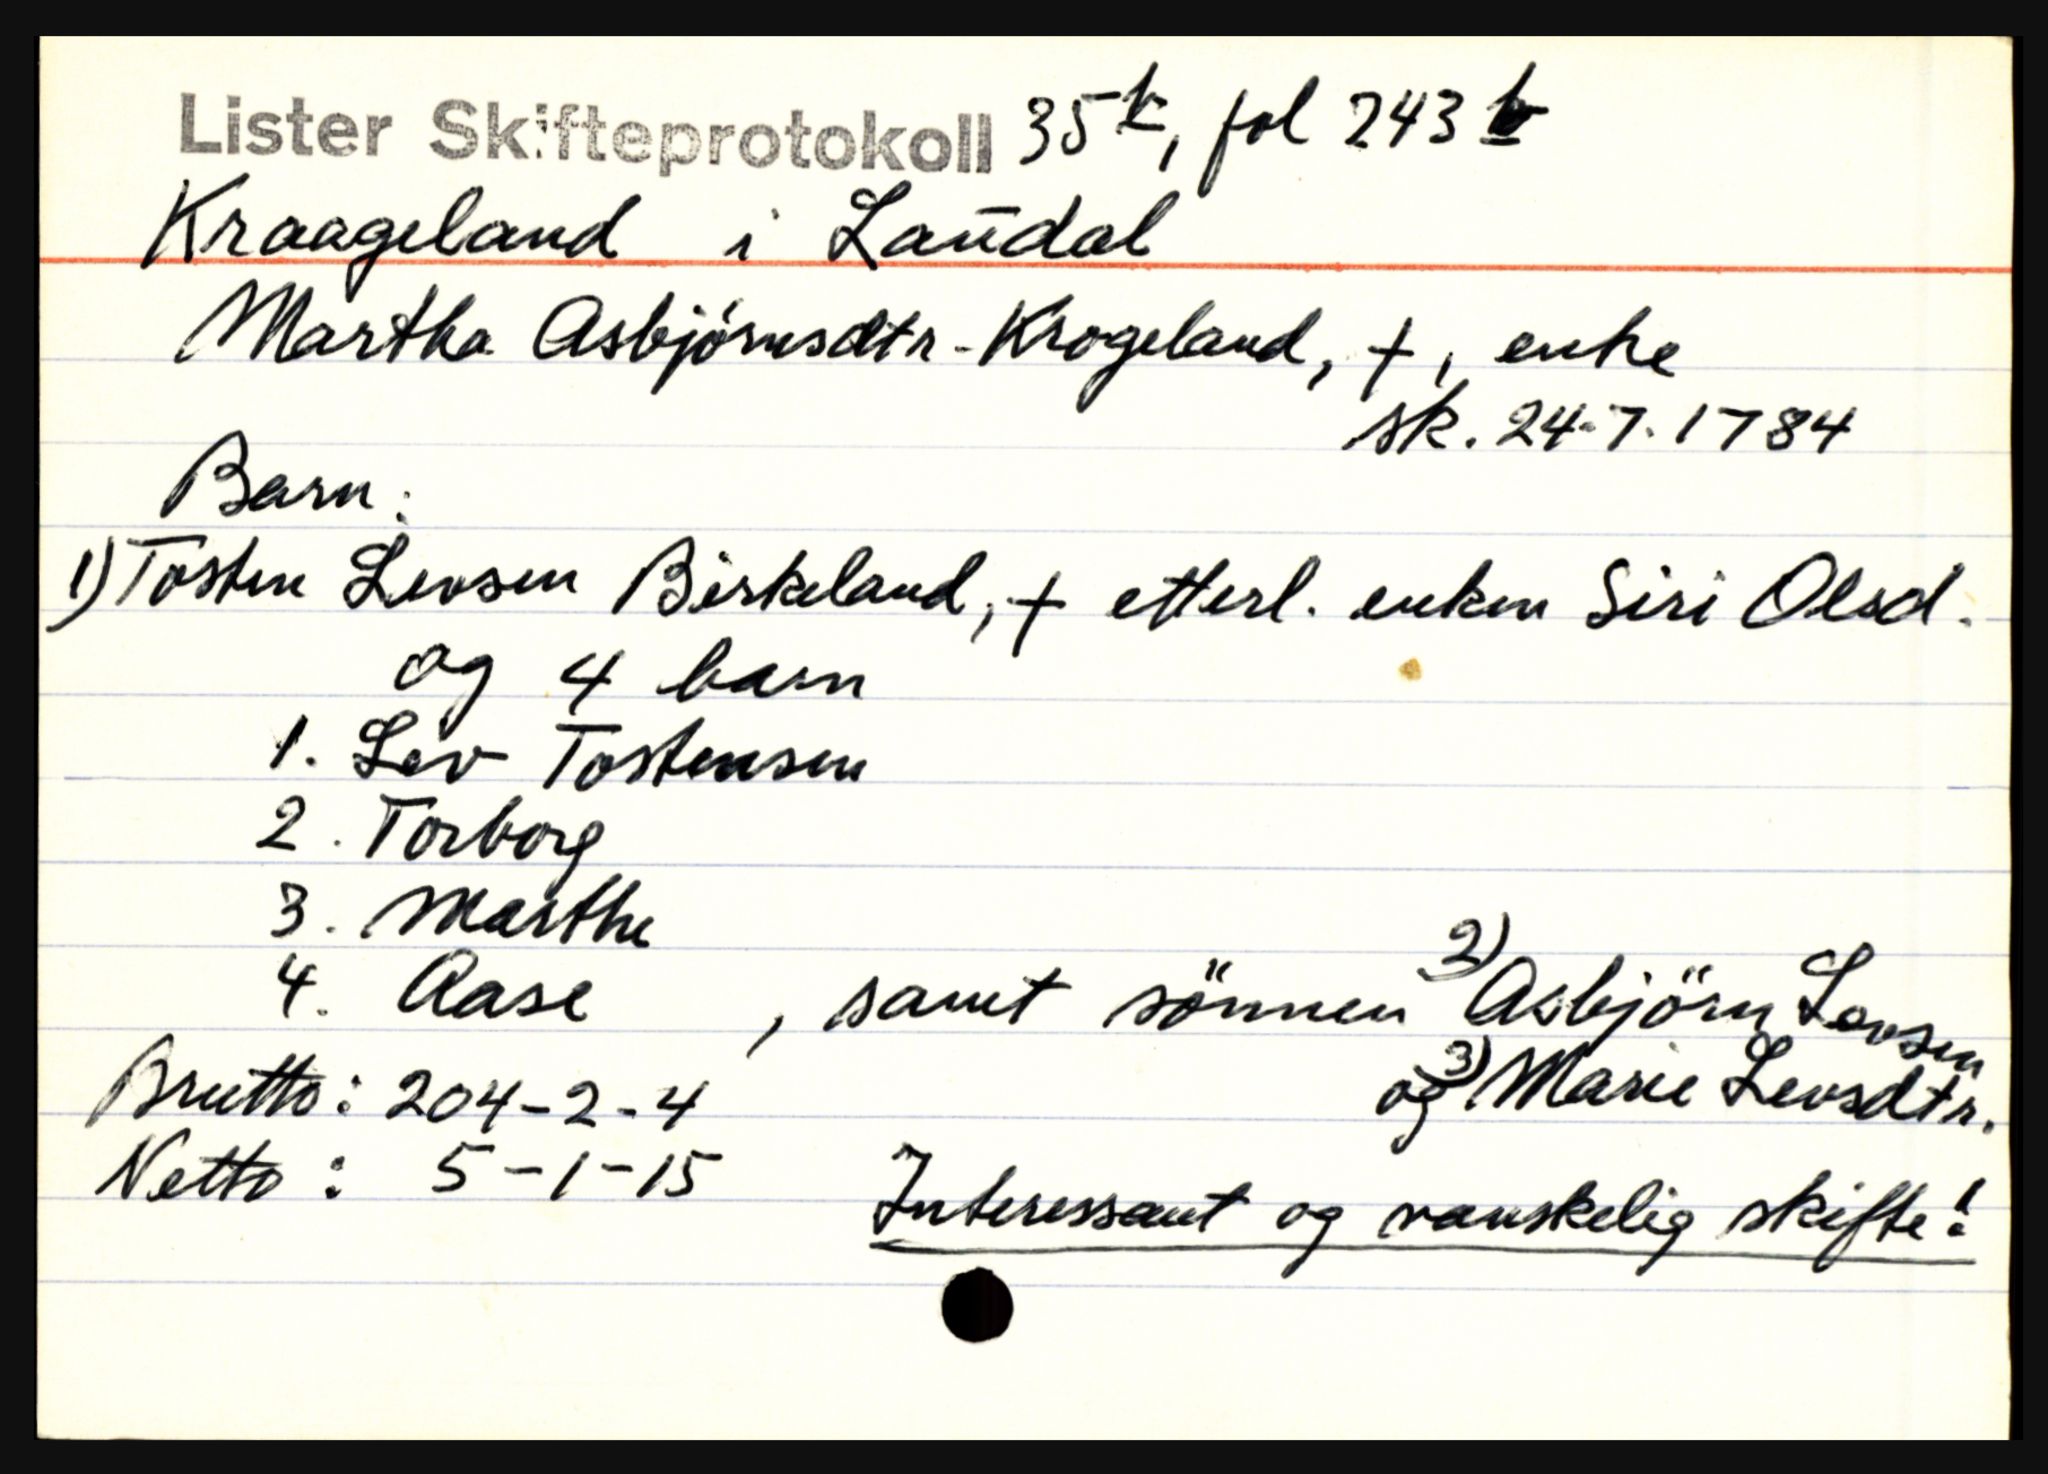 Lister Skifteprotokoll 35b, fol 243b
Kraageland i Laudal
Martha Asbjørnsdtr. Krogeland, +, enke
sk. 24.7.1784
Barn:
1) Tosten Levsen Birkeland, + etterl. enken Siri Olsd.
og 4 barn
1. Lev Tostensen
2. Torborg
3. Marthe
4. Aase , samt sönnen 2) Asbjörn Levsen
og 3) Marie Levsdtr.
Brutto: 204-2-4
Netto: 5-1-15
Interessant og vanskelig skifte!